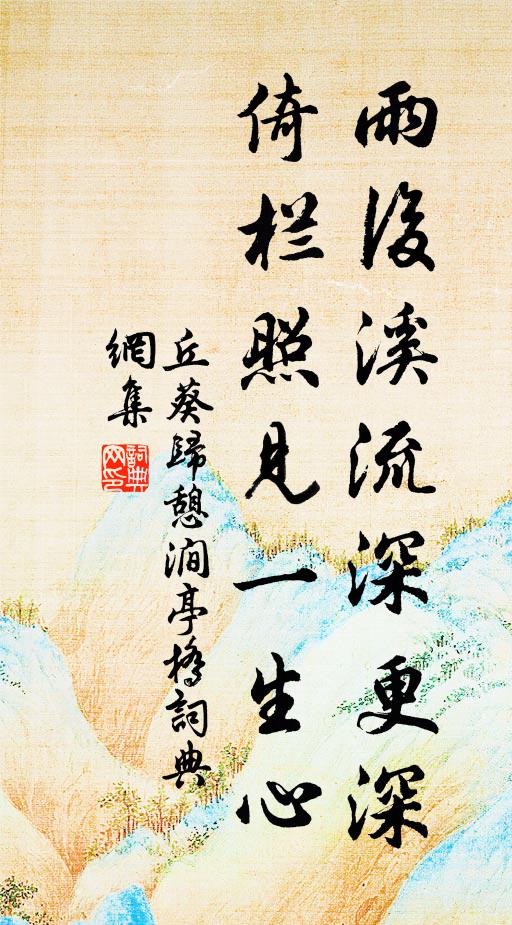 雨後溪流深更深
倚栏照見一生心
丘葵歸憩澗亭橋詞典
網集
詞典
网印